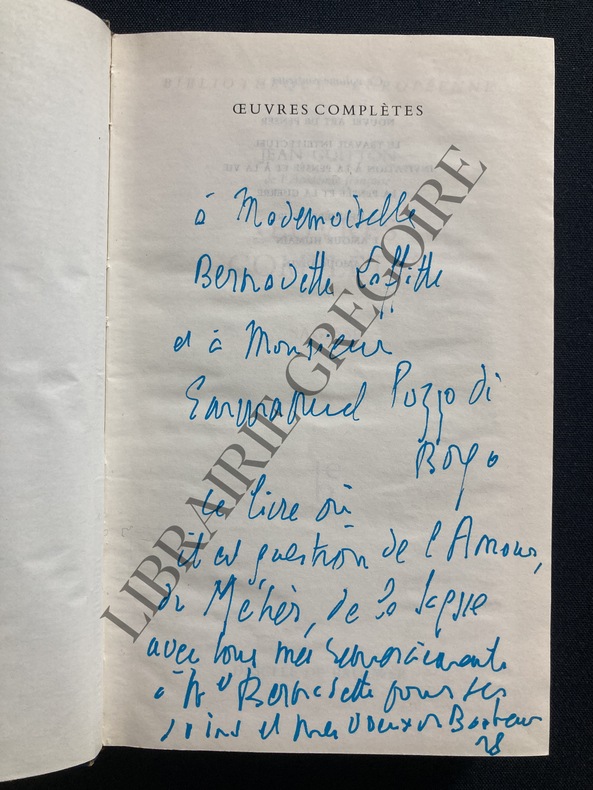 ŒUVRES COMPLÈTES
à Mademoiselle
Bernadette Laffitte
et à Monsieur
Emmanuel Pozzo di
Borgo
Ce livre où
il est question de l'Amour,
du Métier, de la Sagesse
avec tous mes remerciements
à Mlle Bernadette pour ses
soins et mes voeux de Bonheur
LIBRAIRIE GREGOIRE